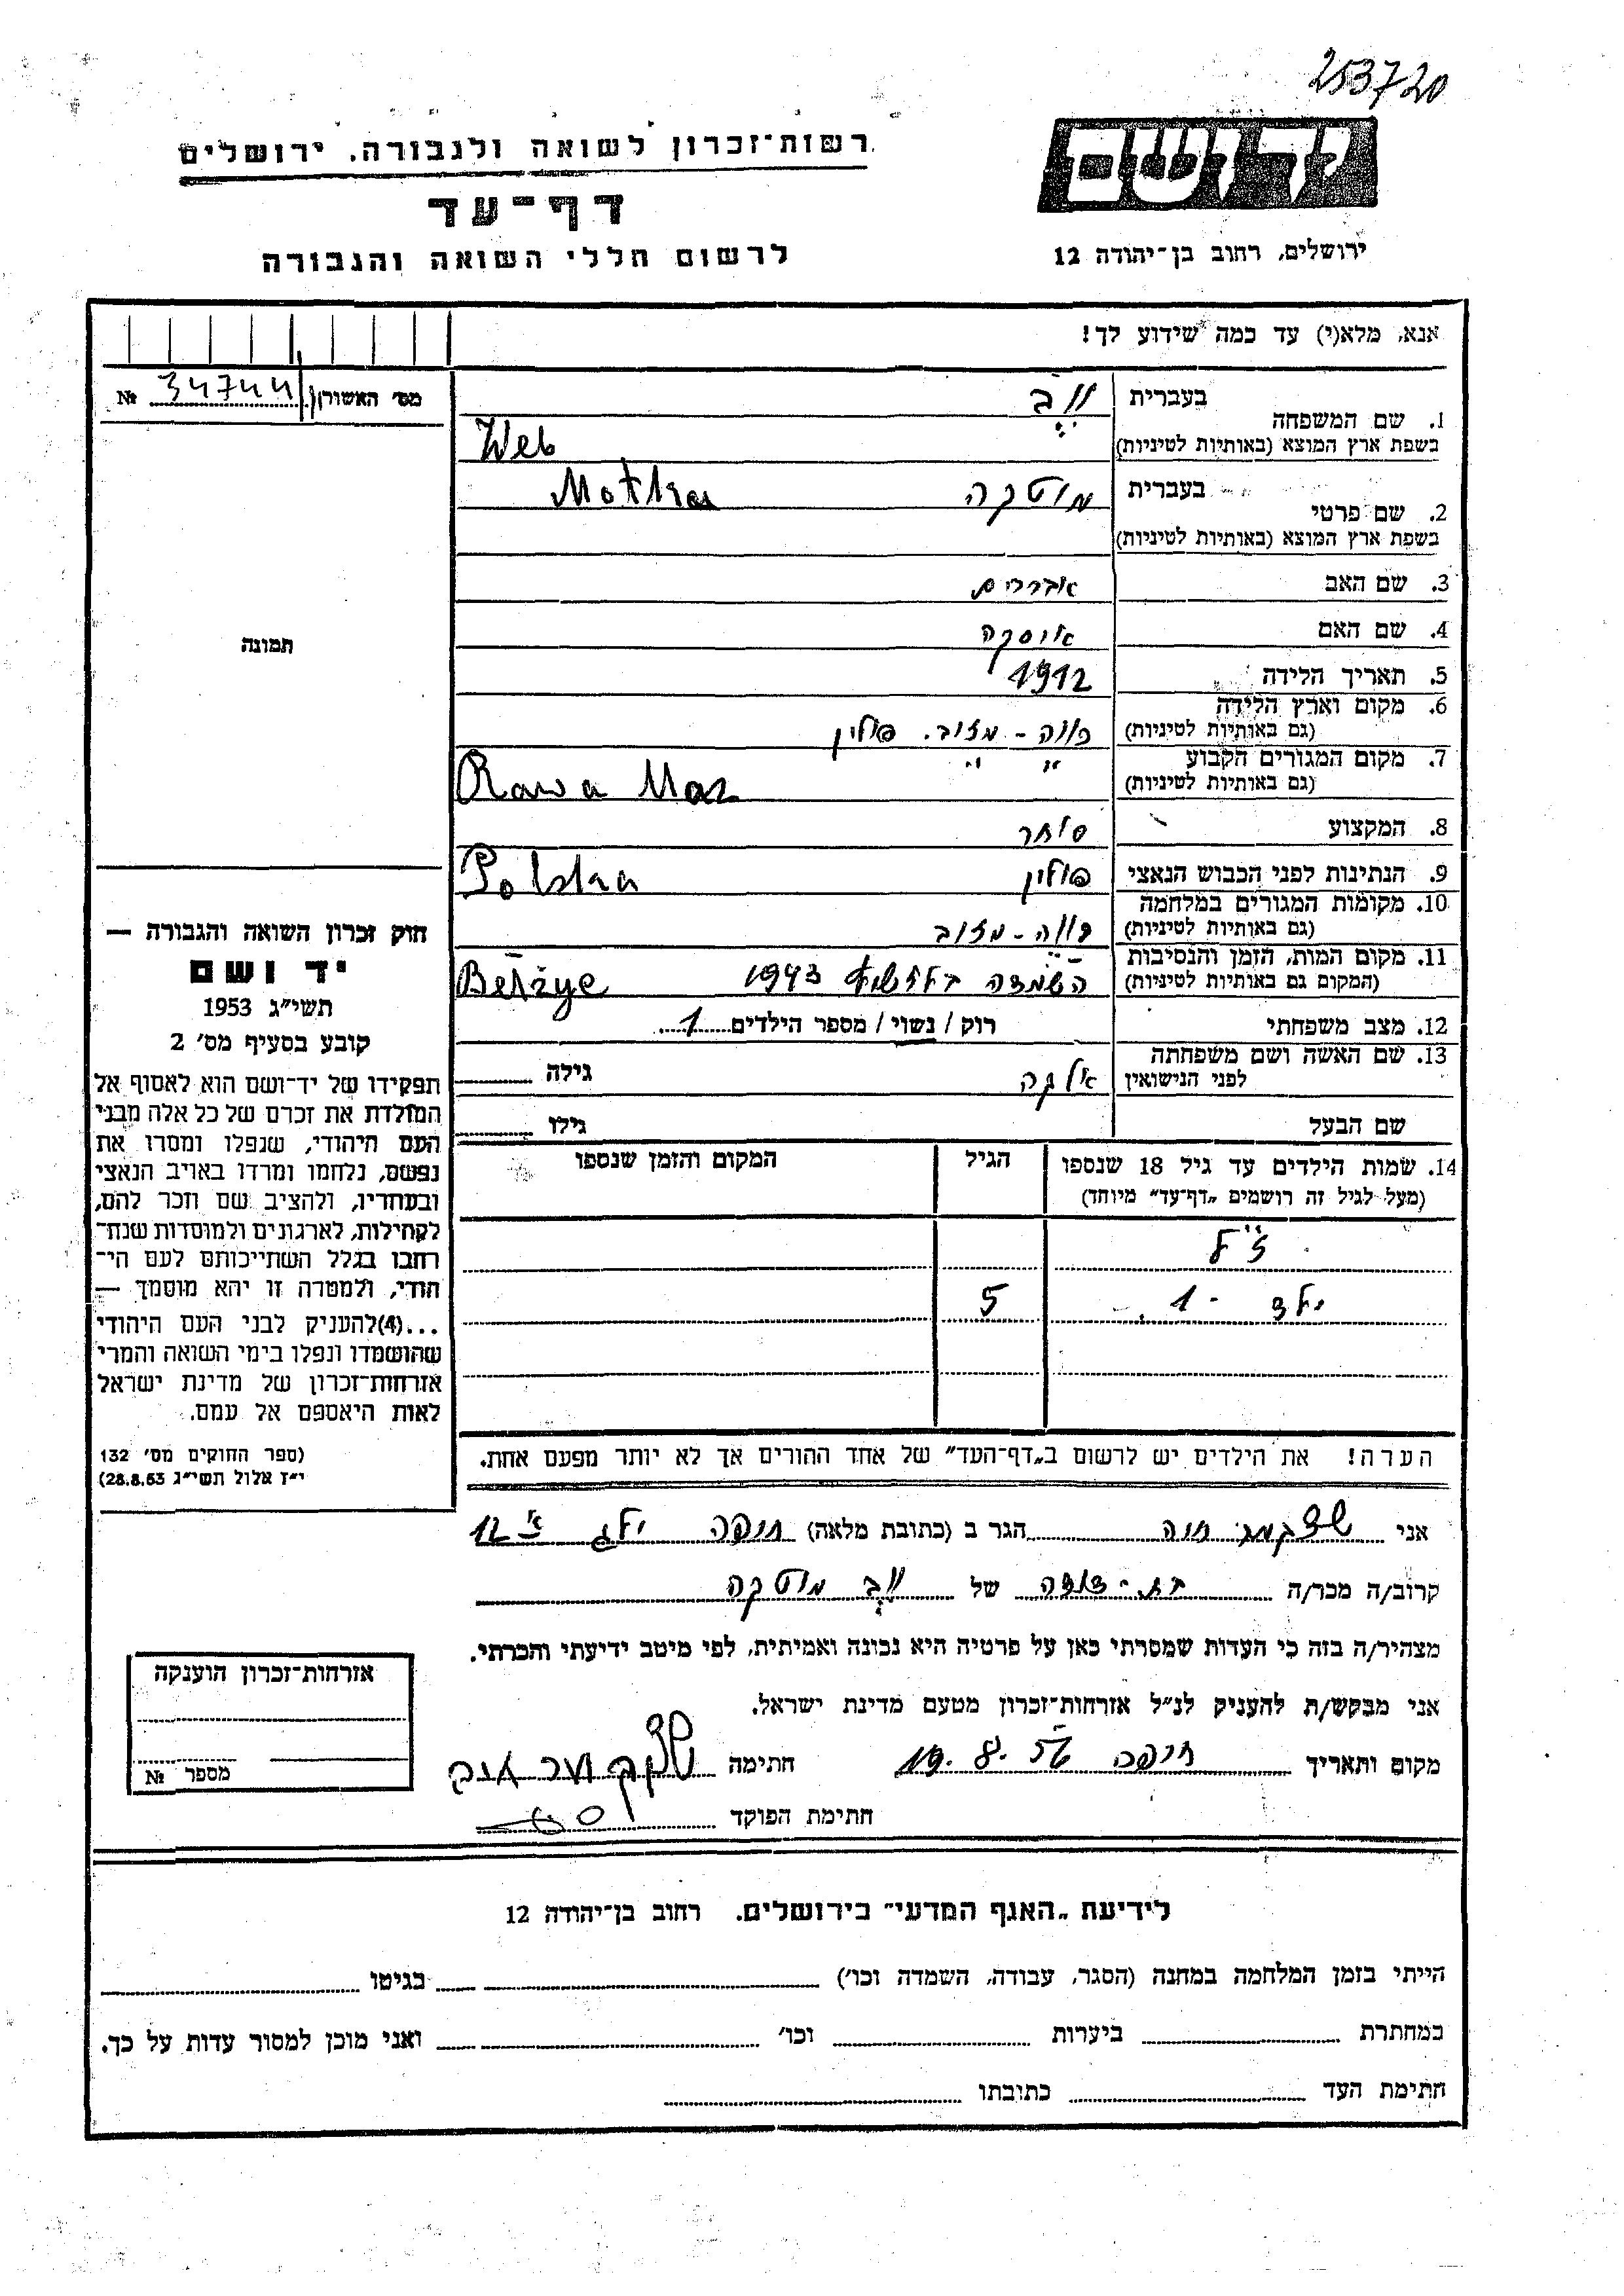 253720
רשות־זכרון לשואה ולגבורה, ירושלים
יד ושם
דף־עד
לרשום חללי השואה והגבורה
ירושלים, רחוב בן־יהודה 12
אנא, מלא(י) עד כמה שידוע לך!
מס' האשורון 34744 №
1. שם המשפחה בעברית ווב
בשפת ארץ המוצא (באותיות לטיניות) Web
2. שם פרטי בעברית מוטקה Motka
בשפת ארץ המוצא (באותיות לטיניות)
3. שם האב אברהם
4. שם האם
תמונה
5. תאריך הלידה 1912
6. מקום וארץ הלידה
(גם באותיות לטיניות) רווה - מזוב. פולין
7. מקום המגורים הקבוע " "
(גם באותיות לטיניות) Rawa Maz
8. המקצוע סוחר
9. הנתינות לפני הכבוש הנאצי פולין Polska
10. מקומות המגורים במלחמה
(גם באותיות לטיניות) רווה - מזוב
11. מקום המות, הזמן והנסיבות
(המקום גם באותיות לטיניות) השמדה 1943
12. מצב משפחתי רוק / נשוי / מספר הילדים 1
13. שם האשה ושם משפחתה
לפני הנישואין אלקה גילה
שם הבעל גילו
חוק זכרון השואה והגבורה —
יד ושם
תשי״ג 1953
קובע בסעיף מס' 2
תפקידו של יד־ושם הוא לאסוף אל
המולדת את זכרם של כל אלה מבני
העם היהודי, שנפלו ומסרו את
נפשם, נלחמו ומרדו באויב הנאצי
ובעוזריו, ולהציב שם וזכר להם,
לקהילות, לארגונים ולמוסדות שנח־
רבו בגלל השתייכותם לעם הי־
הודי, ולמטרה זו יהא מוסמך —
...(4)להעניק לבני העם היהודי
שהושמדו ונפלו בימי השואה והמרי
אזרחות־זכרון של מדינת ישראל
לאות היאספם אל עמם.
(ספר החוקים מס' 132
י״ז אלול תשי״ג 28.8.53)
14. שמות הילדים עד גיל 18 שנספו הגיל המקום והזמן שנספו
(מעל לגיל זה רושמים „דף־עד״ מיוחד)
ילד - 1 5
הערה! את הילדים יש לרשום ב„דף־העד״ של אחד ההורים אך לא יותר מפעם אחת.
אני חוה הגר ב (כתובת מלאה) חיפה 12
קרוב/ה מכר/ה בת-דודה של ווב מוטקה
מצהיר/ה בזה כי העדות שמסרתי כאן על פרטיה היא נכונה ואמיתית, לפי מיטב ידיעתי והכרתי.
אני מבקש/ת להעניק לנ״ל אזרחות־זכרון מטעם מדינת ישראל.
מקום ותאריך חיפה 19. 8. 56 חתימה
חתימת הפוקד
אזרחות־זכרון הוענקה
מספר №
לידיעת „האגף המדעי״ בירושלים. רחוב בן־יהודה 12
הייתי בזמן המלחמה במחנה (הסגר, עבודה, השמדה וכו') בגיטו
במחתרת ביערות וכו' ואני מוכן למסור עדות על כך.
חתימת העד כתובתו